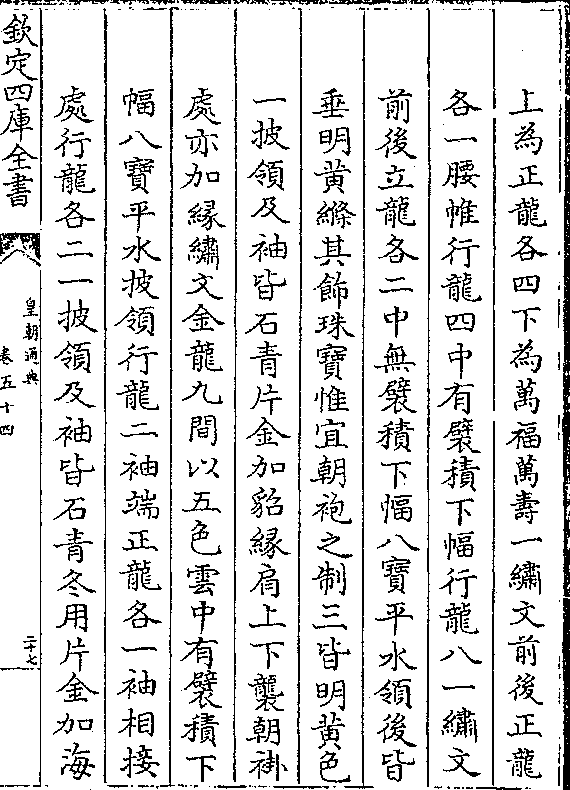 上為正龍各四下為萬福萬壽一繡文前後正龍
各一腰帷行龍四中有襞積下幅行龍八一繡文
前後立龍各二中無襞積下幅八寶平水領後皆
垂明黄絛其飾珠寶惟宜朝袍之制三皆明黄色
一披領及袖皆石青片金加貂緣肩上下襲朝褂
處亦加緣繡文金龍九間以五色雲中有襞積下
幅八寶平水披領行龍二袖端正龍各一袖相接
處行龍各二一披領及袖皆石青冬用片金加海
欽定四庫全書
皇朝通典
卷五十四
二十七